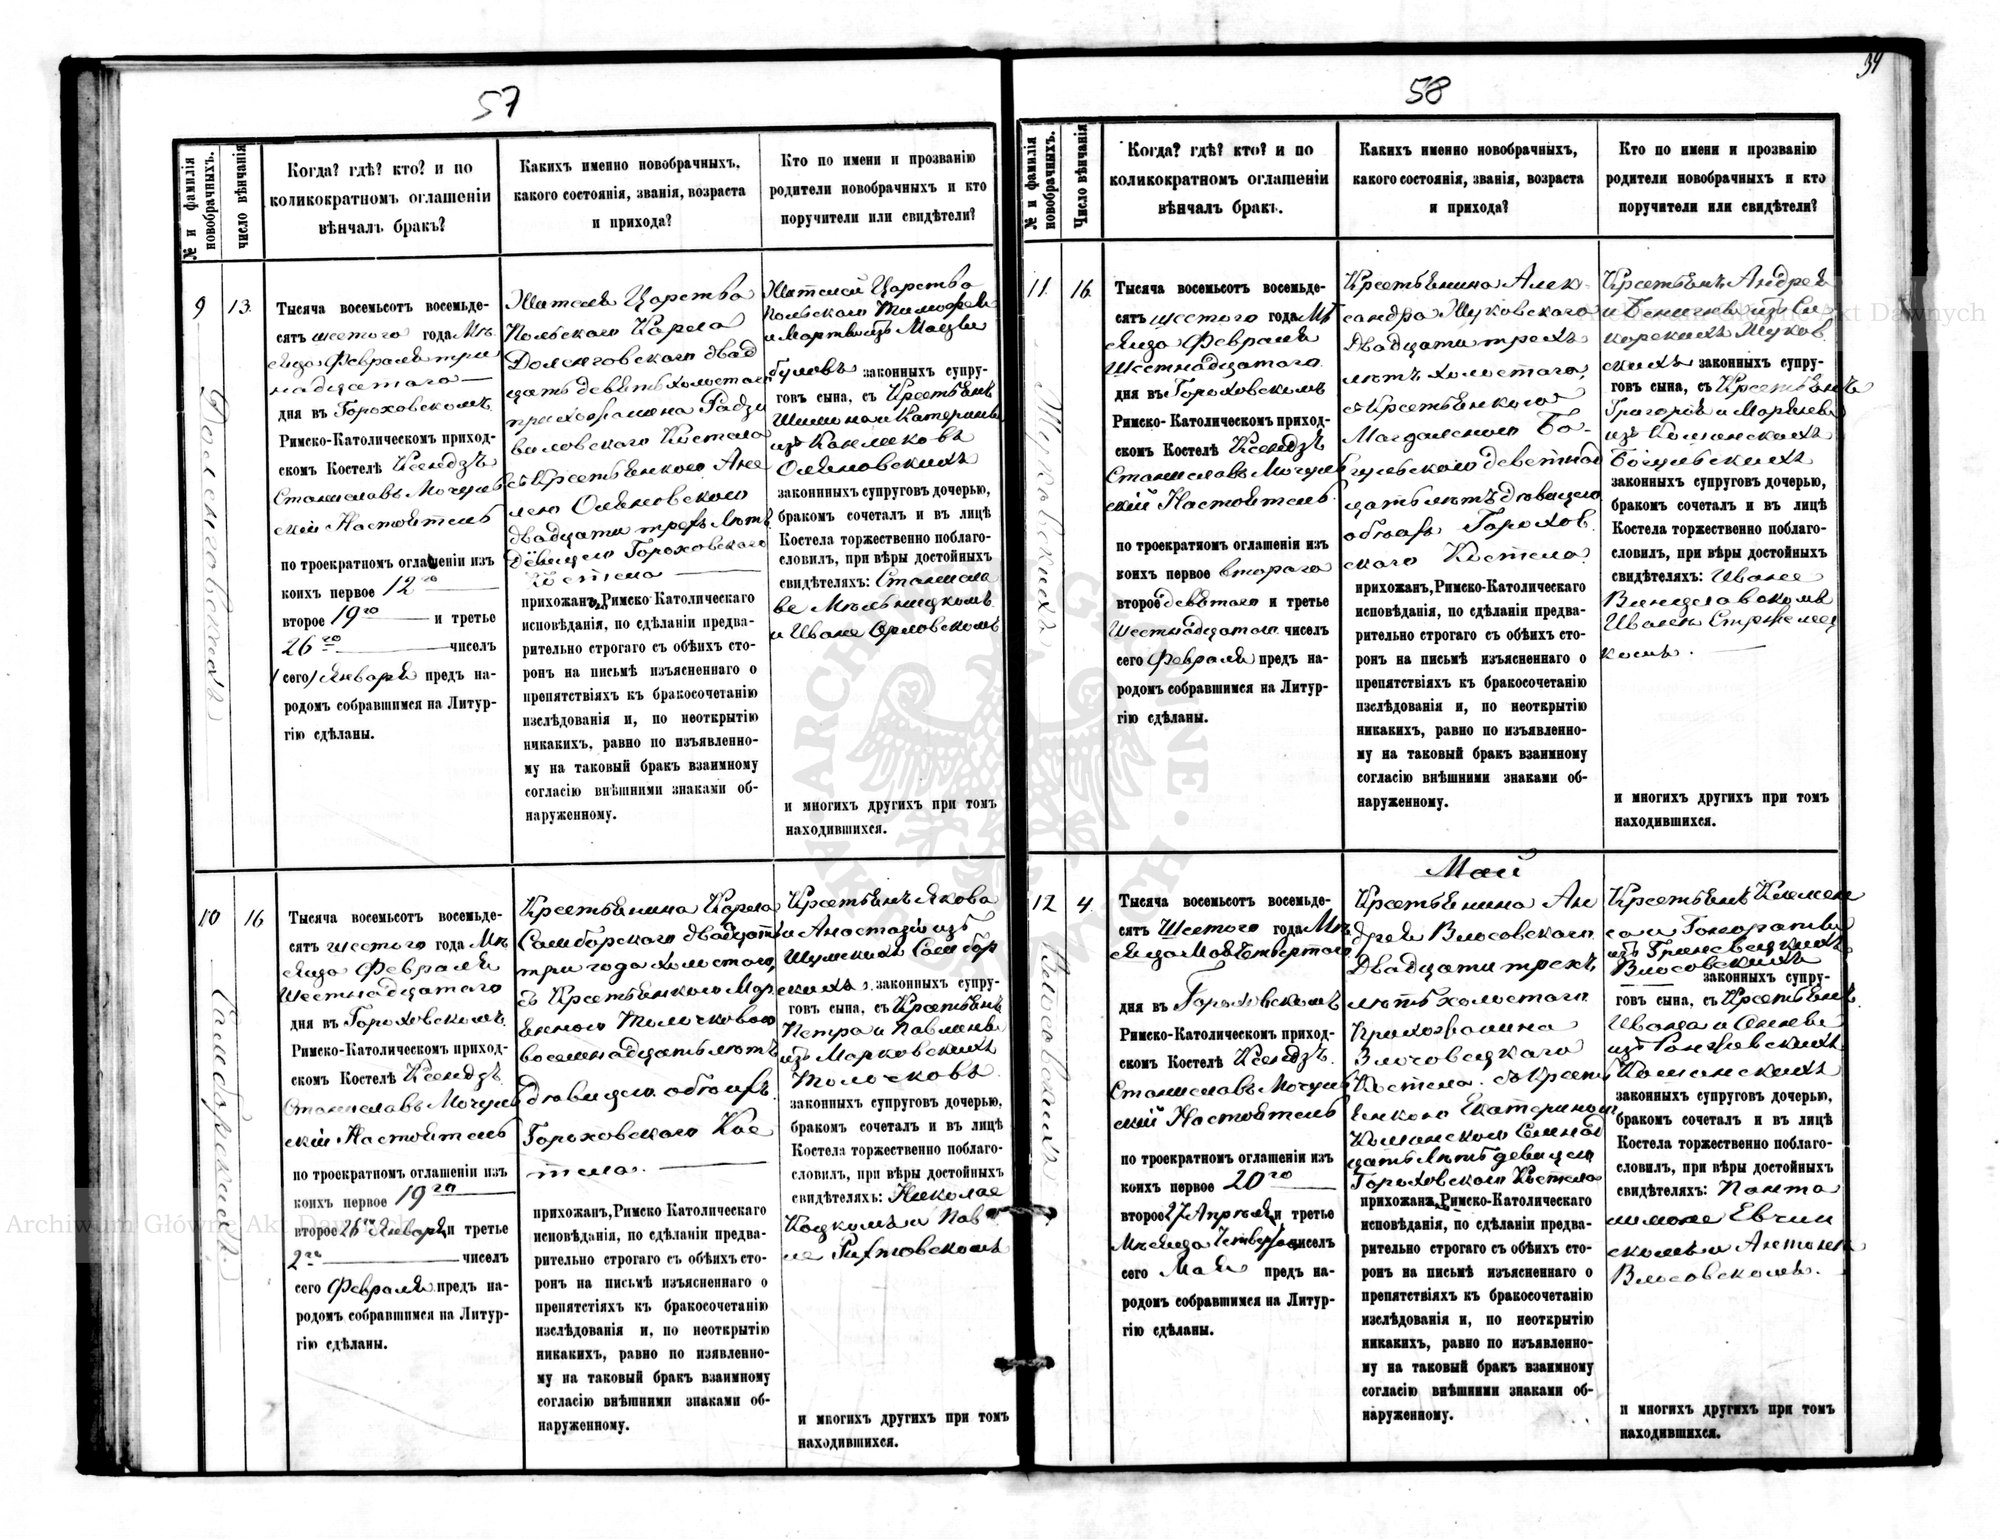 57
№ и фамилія новобрачныхъ.
число вѣнчанія
Когда? гдѣ? кто? и по
коликократномъ оглашеніи
вѣнчалъ бракъ?
Какихъ именно новобрачныхъ,
какого состоянія, званія, возраста
и прихода?
Кто по имени и прозванію
родители новобрачныхъ и кто
поручители или свидѣтели?
9
13.
Тысяча восемьсотъ восемьде-
сятъ шестого года Мѣ
сяца Февраля три
надцатого
дня въ Гороховскомъ
Римско-Католическомъ приход-
скомъ Костелѣ Ксендзъ
Станиславъ Мочуль
скій Настоятель
по троекратномъ оглашеніи изъ
коихъ первое 12го
второе 19го и третье
26го чиселъ
(сего) Января предъ на-
родомъ собравшимся на Литур-
гію сдѣланы.
Жителя Царства
Польского Карла
Доленговского двад
цать девять холостого
прихожанина Радзи
виловского Костела
съ Крестьянкою
Оляновскою
двадцати трехъ лѣтъ
дѣвицею Гороховского
Костела
прихожанъ, Римско-Католическаго
исповѣданія, по сдѣланіи предва-
рительно строгаго съ обѣихъ сто-
ронъ на письмѣ изъясненнаго о
препятствіяхъ къ бракосочетанію
изслѣдованія и, по неоткрытію
никакихъ, равно по изъявленно-
му на таковый бракъ взаимному
согласію внѣшними знаками об-
наруженному.
Жителей Царства
Польского Тимофея
и Марты изъ
законныхъ супру-
говъ сына, съ Крестьянъ
и Катерины
изъ
Оляновскихъ
законнныхъ супруговъ дочерью,
бракомъ сочеталъ и въ лицѣ
Костела торжественно поблаго-
словилъ, при вѣры достойныхъ
свидѣтеляхъ: Станисла
ве Мѣльницкомъ
и Иване Орловскомъ
и многихъ другихъ при томъ
находившихся.
Доленговскихъ
10
16
Тысяча восемьсотъ восемьде-
сятъ шестого года Мѣ
сяца Февраля
Шестнадцатого
дня въ Гороховскомъ
Римско-Католическомъ приход-
скомъ Костелѣ Ксендзъ
Станиславъ Мочуль
скій Настоятель
по троекратномъ оглашеніи изъ
коихъ первое 19го
второе 26го Января и третье
2го чиселъ
сего Февраля предъ на-
родомъ собравшимся на Литур-
гію сдѣланы.
Крестьянина Карла
Самборского двадцать
три года холостого,
съ Крестьянкою Мар
Толочковою
восемнадцать лѣтъ
дѣвицею обоихъ
Гороховского Кос
тела.
прихожанъ, Римско Католическаго
исповѣданія, по сдѣланіи предва-
рительно строгаго съ обѣихъ сто-
ронъ на письмѣ изъясненнаго о
препятстіяхъ къ бракосочетанію
изслѣдованія и, по неоткрытію
никакихъ, равно по изявленно-
му на таковый бракъ взаимному
согласію внѣшними знаками об-
наруженному.
Крестьянъ Якова
и Анастазіи изъ
Шумскихъ Самбор
скихъ. законныхъ супру-
говъ сына, съ Крестьянъ
Петра и Павлины
изъ Марковскихъ
Толочковъ
законныхъ супруговъ дочерью,
бракомъ сочеталъ и въ лицѣ
Костела торжественно поблаго-
словилъ, при вѣры достойныхъ
свидѣтеляхъ: Николае
и Пав
ле Рихтовскомъ
и многихъ другихъ при томъ
находившихся.
Самборскихъ
58
34
№ и фамилія новобрачныхъ.
Число вѣнчанія
Когда? гдѣ? кто? и по
коликократномъ оглашеніи
вѣнчалъ бракъ.
Какихъ именно новобрачныхъ,
какого состоянія, званія, возраста
и прихода?
Кто по имени и прозванію
родители новобрачныхъ и кто
поручители или свидѣтели?
11.
16.
Тысяча восемьсотъ восемьде-
сятъ шестого года Мѣ
сяца Февраля
Шестнадцатого
дня въ Гороховскомъ
Римско-Католическомъ приход-
скомъ Костелѣ Ксендзъ
Станиславъ Мочуль
скій Настоятель
по троекратномъ оглашеніи изъ
коихъ первое второго
второе девятого и третье
Шестнадцатого чиселъ
сего Февраля предъ на-
родомъ собравшимся на Литур-
гію сдѣланы.
Крестьянина Алек
сандра Жуковского
двадцати трехъ
лѣтъ холостого,
съ Крестьянкою
Магдаленою Бо-
гульскою девятнад
цать лѣтъ дѣвицею
обоихъ Горохов
ского Костела
прихожанъ, Римско-Католическаго
исповѣданія, по сдѣланіи предва-
рительно строгаго съ обѣихъ сто-
ронъ на письмѣ изъясненнаго о
препятствіяхъ къ бракосочетанію
изслѣдованія и, по неоткрытію
никакихъ, равно по изъявленно-
му на таковый бракъ взаимному
согласію внѣшними знаками об-
наруженному.
Крестьянъ Андрея
и Бенигны изъ Си
корскихъ Жуков
скихъ законныхъ супру-
говъ сына, съ Крестьянъ
Григорія и Маріанны
изъ Команскихъ
Богульскихъ
законныхъ супруговъ дочерью,
бракомъ сочеталъ и въ лицѣ
Костела торжественно поблаго-
словилъ, при вѣры достойныхъ
свидѣтеляхъ: Иване
скомъ
комъ.
и многихъ другихъ при томъ
находившихся.
Жуковскихъ
Май
12
4.
Тысяча восемьсотъ восемьде-
сятъ Шестого года Мѣ
сяца Мая Четвертого
дня въ Гороховскомъ
Римско-Католическомъ приход-
скомъ Костелѣ Ксендзъ
Станиславъ Мочуль
скій Настоятель
по троекратномъ оглашеніи изъ
коихъ первое 20го
второе 27 Апрѣля и третье
Мѣсяца Четвертого чиселъ
сего Мая предъ на-
родомъ собравшимся на Литур-
гію сдѣланы.
Крестьянина Ан
дрея Влосовского
двадцати трехъ
лѣтъ холостого
прихожанина
Злочовецкого
Костела съ Кресть
янкою Екатериною
Команскою Семнад
цать лѣтъ девицею
Гороховского Костела
прихожанъ, Римско-Католическаго
исповѣданія, по сдѣланіи предва-
рительно строгаго съ обѣихъ сто-
ронъ на письмѣ изъясненнаго о
препятствіяхъ къ бракосочетанію
изслѣдованія и, по неоткрытію
никакихъ, равно по изъявленно-
му на таковый бракъ взаимному
согласію внѣшними знаками об-
наруженному.
Крестьянъ Клемен
са и Гоноратыи
изъ Гриневицкихъ
Влосовскихъ
законныхъ супру-
говъ сына, съ Крестьянъ
и
изъ
Команскихъ
законныхъ супруговъ дочерью,
бракомъ сочеталъ и въ лицѣ
Костела торжественно поблаго-
словилъ, при вѣры достойныхъ
свидѣтеляхъ: Панта
лимоне
скомъ и Антоне
Влосовскомъ.
и многихъ другихъ при томъ
находившихся.
Влосовскихъ
Archiwum Główne Akt Dawnych
Archiwum Główne Akt Dawnych
ARCHIWUM GŁÓWNE AKT DAWNYCH